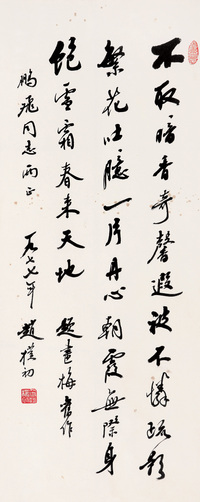 不取暗香奇馨遐被不怜疏影
繁花吐臆一片丹心朝霞无际身
绝雪霜春来天地 题画梅旧作
鹏飞同志两正
一九七七年 赵朴初